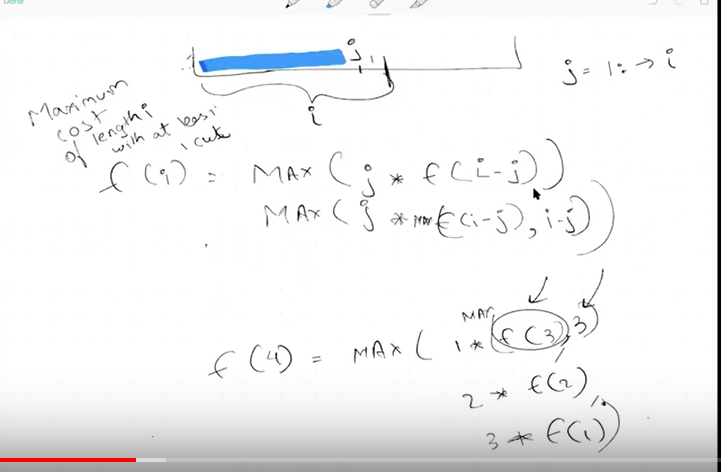 Done
j
1
j = 1 → i
i
Maximum
cost
of length i
with at least
1 cuts
f(i) = MAX ( j * f(i-j))
MAX ( j * MAX f(i-j), i-j))
MAX
f(4) = MAX ( 1 * (f(3), 3)
2 * f(2),
3 * f(1))